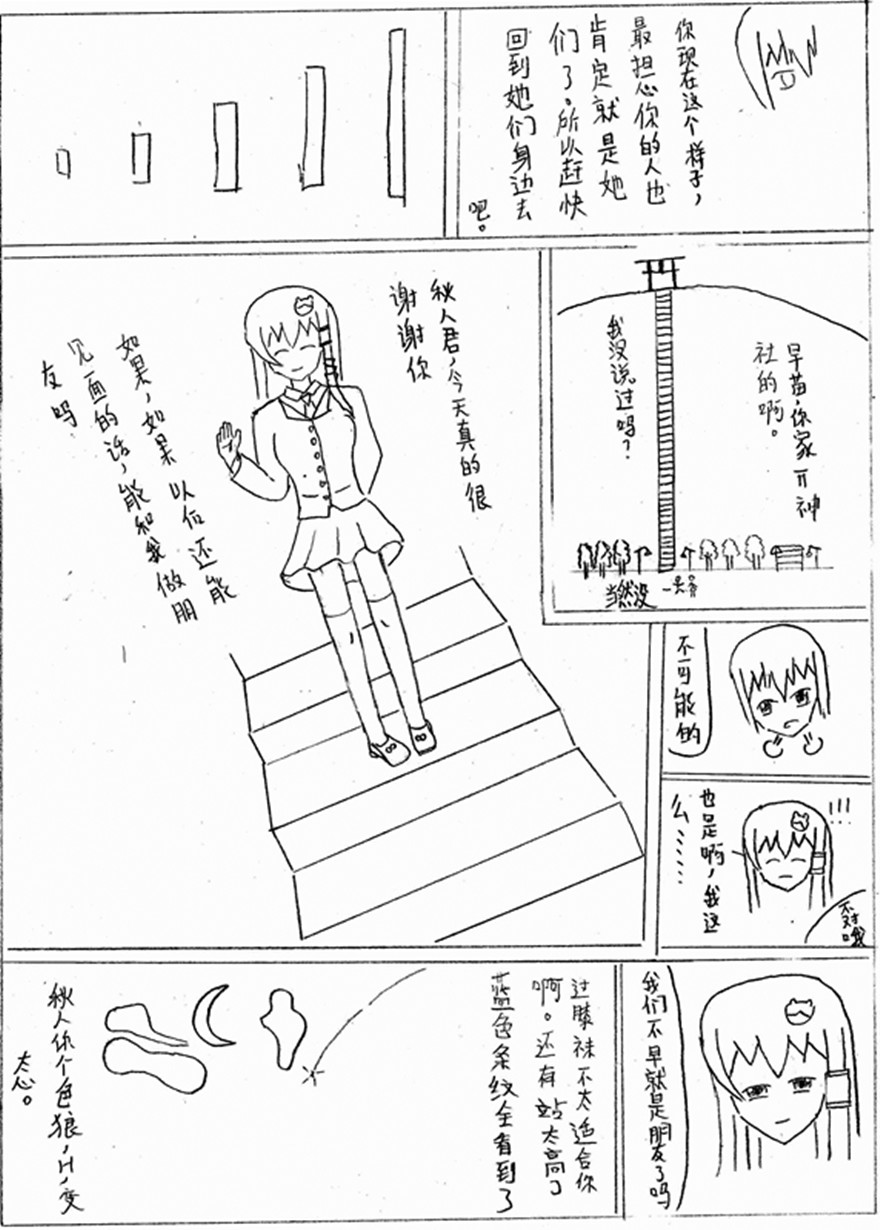 你现在这个样子，
最担心你的人也
肯定就是她
们了。所以赶快
回到她们身边去
吧。
早苗，你家π神
社的啊。
我没说过吗？
当然没
秋人君，今天真的很
谢谢你
如果，如果 以后还能
见面的话，能和我做朋
友吗
不可能的
!!!
也是啊，我这
么……
不对哦
我们不早就是朋友了吗
过膝袜不太适合你
啊。还有站太高了
蓝色条纹全看到了
秋人你个色狼，H，变
太心。